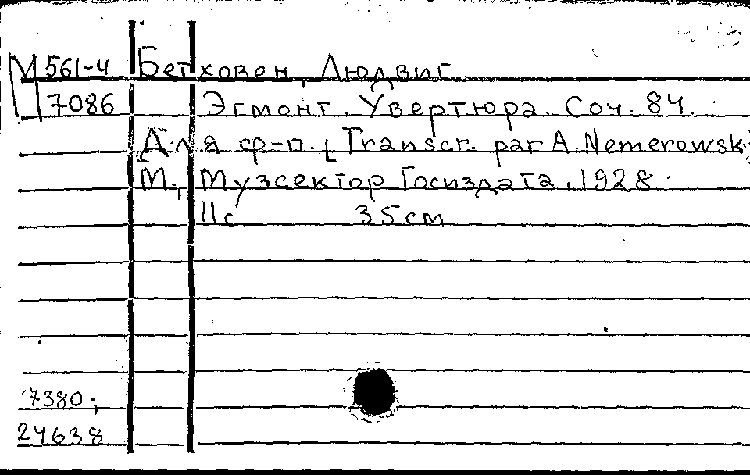 М 561-4 Бетховен, Людвиг
Ц 7086 Эгмонт. Увертюра. Соч. 84.
Для ф-п. [Transcr. par A. Nemerowsk
М., Музсектор Госиздата, 1928.
11с 35см
7380;
24638